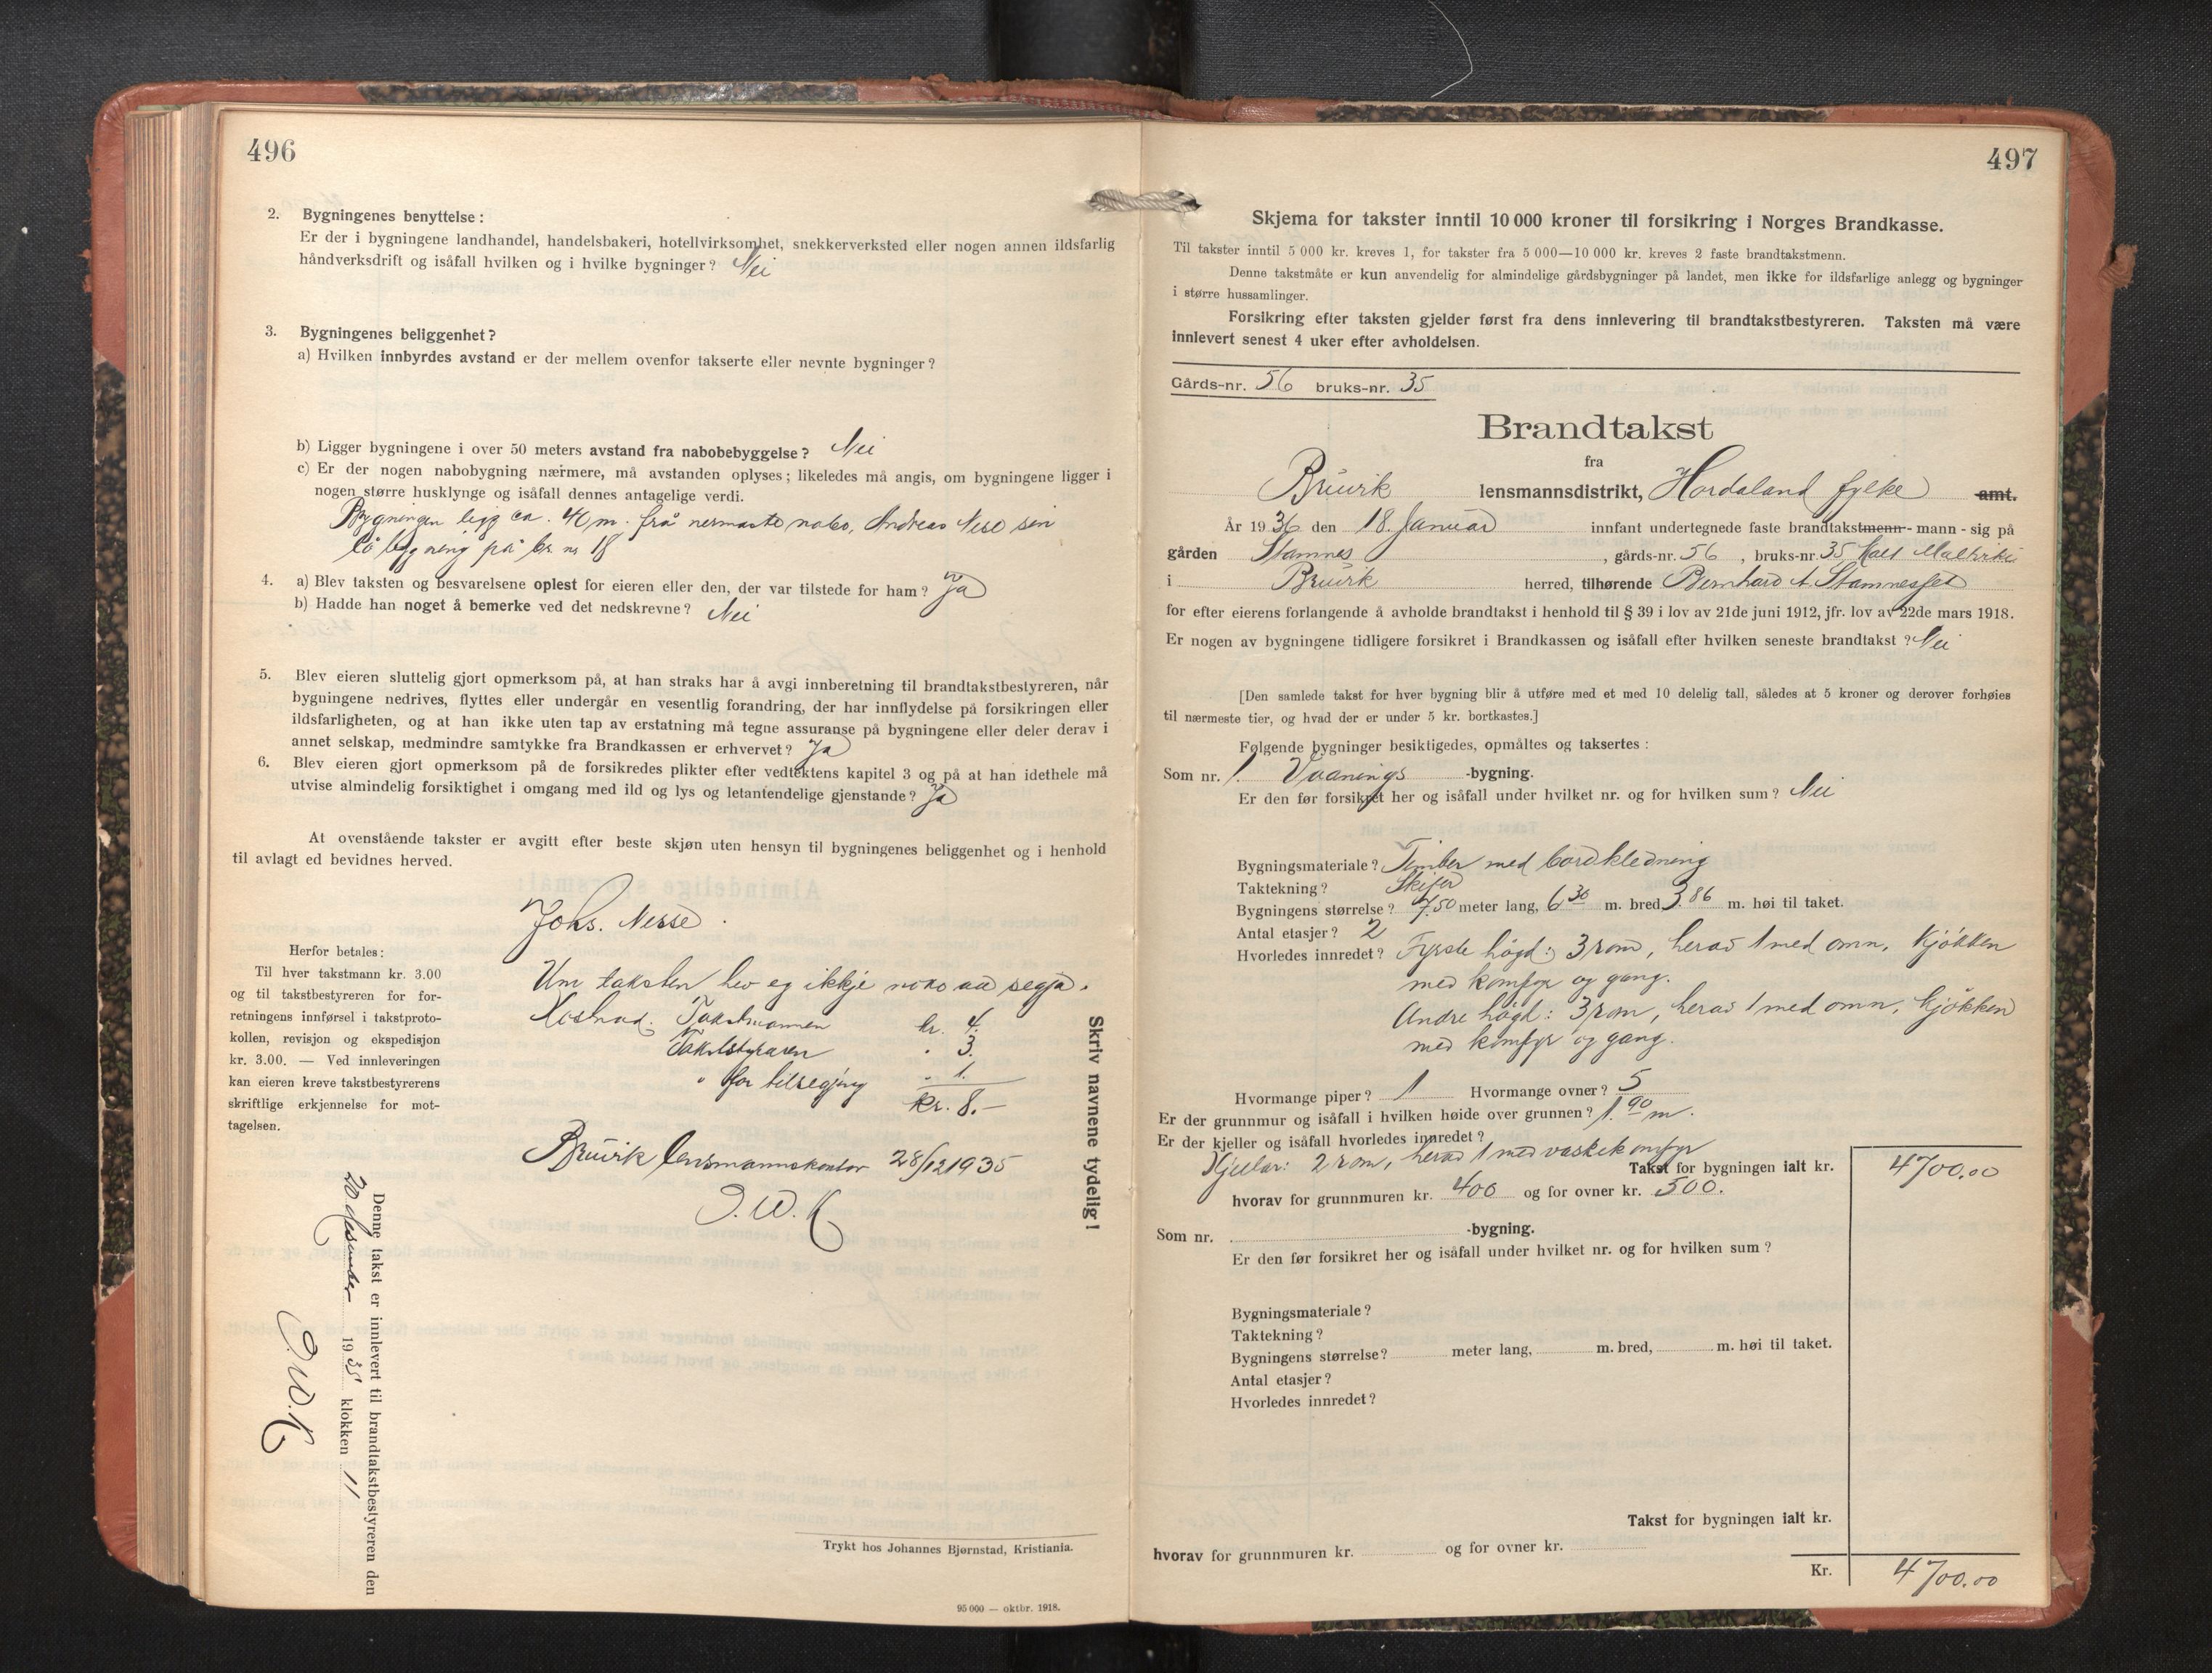 496
2. Bygningenes benyttelse:
Er der i bygningene landhandel, handelsbakeri, hotellvirksomhet, snekkerverksted eller nogen annen ildsfarlig
håndverksdrift og isåfall hvilken og i hvilke bygninger? Nei
3. Bygningenes beliggenhet?
a) Hvilken innbyrdes avstand er der mellem ovenfor takserte eller nevnte bygninger?
b) Ligger bygningene i over 50 meters avstand fra nabobebyggelse? Nei
c) Er der nogen nabobygning nærmere, må avstanden oplyses; likeledes må angis, om bygningene ligger i
nogen større husklynge og isåfall dennes antagelige verdi.
Bygningen ligg ca. 40 m. frå nermaste nabo, Andreas Nese sin
löbygning på br. nr 18
4. a) Blev taksten og besvarelsene oplest for eieren eller den, der var tilstede for ham? Ja
b) Hadde han noget å bemerke ved det nedskrevne? Nei
5. Blev eieren sluttelig gjort opmerksom på, at han straks har å avgi innberetning til brandtakstbestyreren, når
bygningene nedrives, flyttes eller undergår en vesentlig forandring, der har innflydelse på forsikringen eller
ildsfarligheten, og at han ikke uten tap av erstatning må tegne assuranse på bygningene eller deler derav i
annet selskap, medmindre samtykke fra Brandkassen er erhvervet? Ja
6. Blev eieren gjort opmerksom på de forsikredes plikter efter vedtektens kapitel 3 og på at han idethele må
utvise almindelig forsiktighet i omgang med ild og lys og letantendelige gjenstande? Ja
At ovenstående takster er avgitt efter beste skjøn uten hensyn til bygningenes beliggenhet og i henhold
til avlagt ed bevidnes herved.
Johs. Nesse.
Um taksten hev eg ikkje noko aa segja.
Kostnad. Takstmannen kr. 4.
Takststyraren " 3.
" for tilsegjing " 1.
kr. 8.-
Bruvik lensmannskontor 28/12 1935
O.W.K
Herfor betales:
Til hver takstmann kr. 3.00
og til takstbestyreren for for-
retningens innførsel i takstproto-
kollen, revisjon og ekspedisjon
kr. 3.00. — Ved innleveringen
kan eieren kreve takstbestyrerens
skriftlige erkjennelse for mot-
tagelsen.
Denne takst er innlevert til brandtakstbestyreren den
20 desember 1935 klokken 11
O.W.K
Skriv navnene tydelig!
Trykt hos Johannes Bjørnstad, Kristiania.
95 000 — oktbr. 1918.
497
Skjema for takster inntil 10 000 kroner til forsikring i Norges Brandkasse.
Til takster inntil 5 000 kr. kreves 1, for takster fra 5 000—10 000 kr. kreves 2 faste brandtakstmenn.
Denne takstmåte er kun anvendelig for almindelige gårdsbygninger på landet, men ikke for ildsfarlige anlegg og bygninger
i større hussamlinger.
Forsikring efter taksten gjelder først fra dens innlevering til brandtakstbestyreren. Taksten må være
innlevert senest 4 uker efter avholdelsen.
Gårds-nr. 56 bruks-nr. 35
Brandtakst
fra
Bruvik lensmannsdistrikt, Hordaland fylke amt.
År 1936 den 18. Januar innfant undertegnede faste brandtakstmenn - mann - sig på
gården Stamnes, gårds-nr. 56, bruks-nr. 35 kalt
i Bruvik herred, tilhørende Bernhard A. Stamneset
for efter eierens forlangende å avholde brandtakst i henhold til § 39 i lov av 21de juni 1912, jfr. lov av 22de mars 1918.
Er nogen av bygningene tidligere forsikret i Brandkassen og isåfall efter hvilken seneste brandtakst? Nei
[Den samlede takst for hver bygning blir å utføre med et med 10 delelig tall, således at 5 kroner og derover forhøies
til nærmeste tier, og hvad der er under 5 kr. bortkastes.]
Følgende bygninger besiktigedes, opmåltes og taksertes:
Som nr. 1. Vaanings -bygning.
Er den før forsikret her og isåfall under hvilket nr. og for hvilken sum? Nei
Bygningsmateriale? Timber med bordkledning
Taktekning? Skifer
Bygningens størrelse? 7.50 meter lang, 6 30 m. bred 3.86 m. høi til taket.
Antal etasjer? 2
Hvorledes innredet? Fyrste høgd: 3 rom, herav 1 med omn, kjøkken
med komfyr og gang.
Andre høgd: 3 rom, herav 1 med omn, kjøkken
med komfyr og gang.
Hvormange piper? 1 Hvormange ovner? 5
Er der grunnmur og isåfall i hvilken høide over grunnen? 1.90 m.
Er der kjeller og isåfall hvorledes innredet?
Kjellar: 2 rom, herav 1 med vaskekomfyr
Takst for bygningen ialt kr. 4700.00
hvorav for grunnmuren kr. 400 og for ovner kr. 500.
Som nr. -bygning.
Er den før forsikret her og isåfall under hvilket nr. og for hvilken sum?
Bygningsmateriale?
Taktekning?
Bygningens størrelse? meter lang, m. bred, m. høi til taket.
Antal etasjer?
Hvorledes innredet?
Takst for bygningen ialt kr.
hvorav for grunnmuren kr. og for ovner kr.
Kr. 4700.00